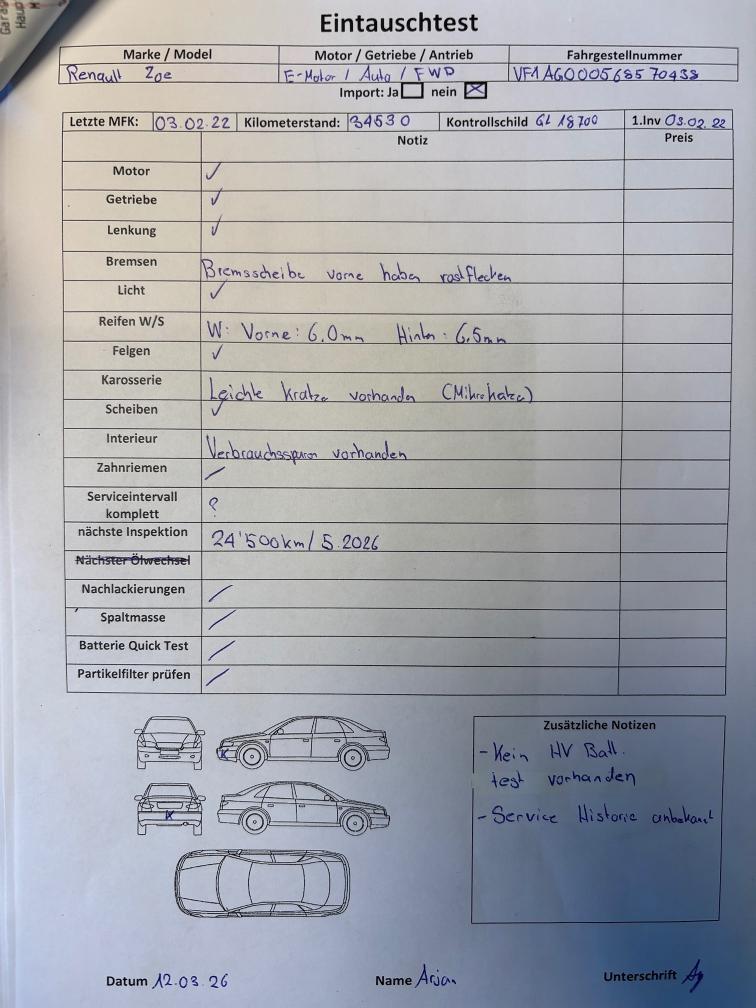 Eintauschtest
Marke / Model Motor / Getriebe / Antrieb Fahrgestellnummer
Renault Zoe E-Motor / Auto / FWD VF1AG000568570438
Import: Ja nein
Letzte MFK: 03.02.22 Kilometerstand: 34530 Kontrollschild GL 18700 1.Inv 03.02.22
Notiz Preis
Motor ✓
Getriebe ✓
Lenkung ✓
Bremsen Bremsscheibe vorne haben rostflecken
Licht ✓
Reifen W/S W: Vorne: 6.0mm Hinten: 6.5mm
Felgen ✓
Karosserie Leichte Kratze vorhanden
Scheiben ✓
Interieur Verbrauchsspuren vorhanden
Zahnriemen /
Serviceintervall
komplett ?
nächste Inspektion 24'500km / 5.2026
Nächster Ölwechsel
Nachlackierungen /
Spaltmasse /
Batterie Quick Test /
Partikelfilter prüfen /
Zusätzliche Notizen
- Kein HV Batt.
test vorhanden
- Service Historie unbekannt
Datum 12.03.26 Name Arjan Unterschrift